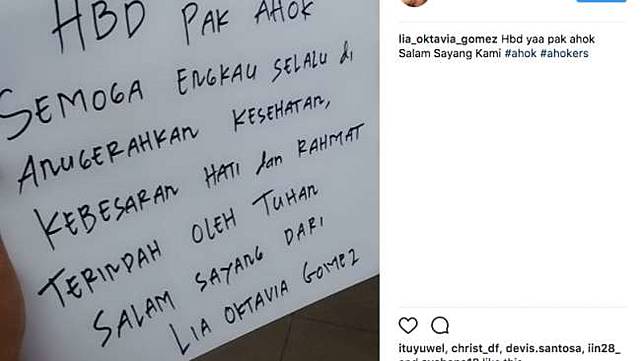 HBD PAK AHOK
SEMOGA ENGKAU SELALU di
ANUGERAHKAN KESEHATAN,
KEBESARAN HATI dan RAHMAT
TERINDAH OLEH TUHAN
SALAM SAYANG DARI
LIA OKTAVIA GOMEZ
lia_oktavia_gomez Hbd yaa pak ahok
Salam Sayang Kami #ahok #ahokers
ituyuwel, christ_df, devis.santosa, iin28_